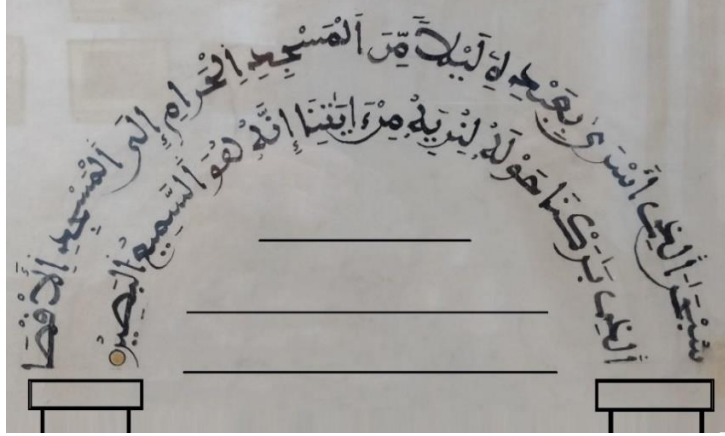 سُبْحَٰنَ ٱلَّذِىٓ أَسْرَىٰ بِعَبْدِهِۦ لَيْلًا مِّنَ ٱلْمَسْجِدِ ٱلْحَرَامِ إِلَى ٱلْمَسْجِدِ ٱلْأَقْصَا
ٱلَّذِى بَٰرَكْنَا حَوْلَهُۥ لِنُرِيَهُۥ مِنْ ءَايَٰتِنَا إِنَّهُۥ هُوَ ٱلسَّمِيعُ ٱلْبَصِيرُ